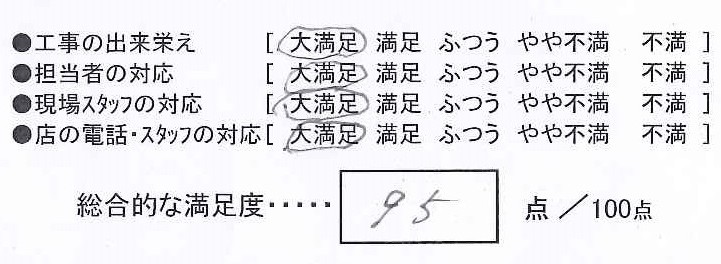 ●工事の出来栄え [ 大満足 満足 ふつう やや不満 不満 ]
●担当者の対応 [ 大満足 満足 ふつう やや不満 不満 ]
●現場スタッフの対応 [ 大満足 満足 ふつう やや不満 不満 ]
●店の電話・スタッフの対応[ 大満足 満足 ふつう やや不満 不満 ]
総合的な満足度‥‥‥ 95 点 ／100点